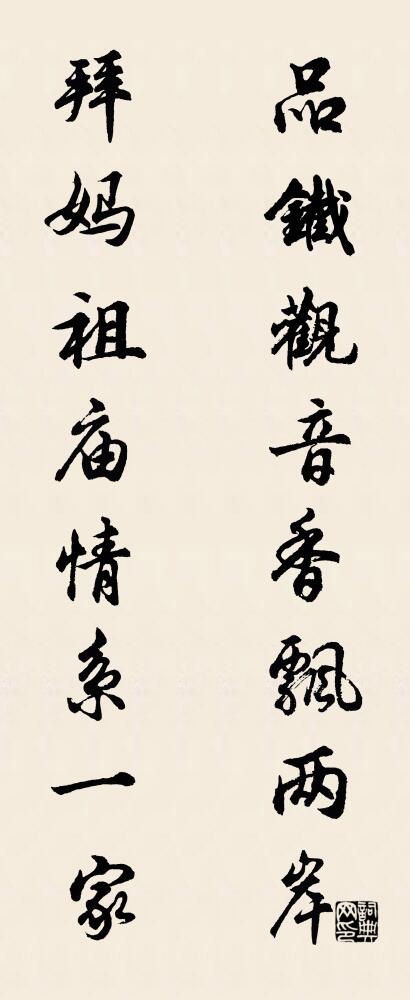 品鐵觀音香飄两岸
拜妈祖庙情系一家
詞典
网印